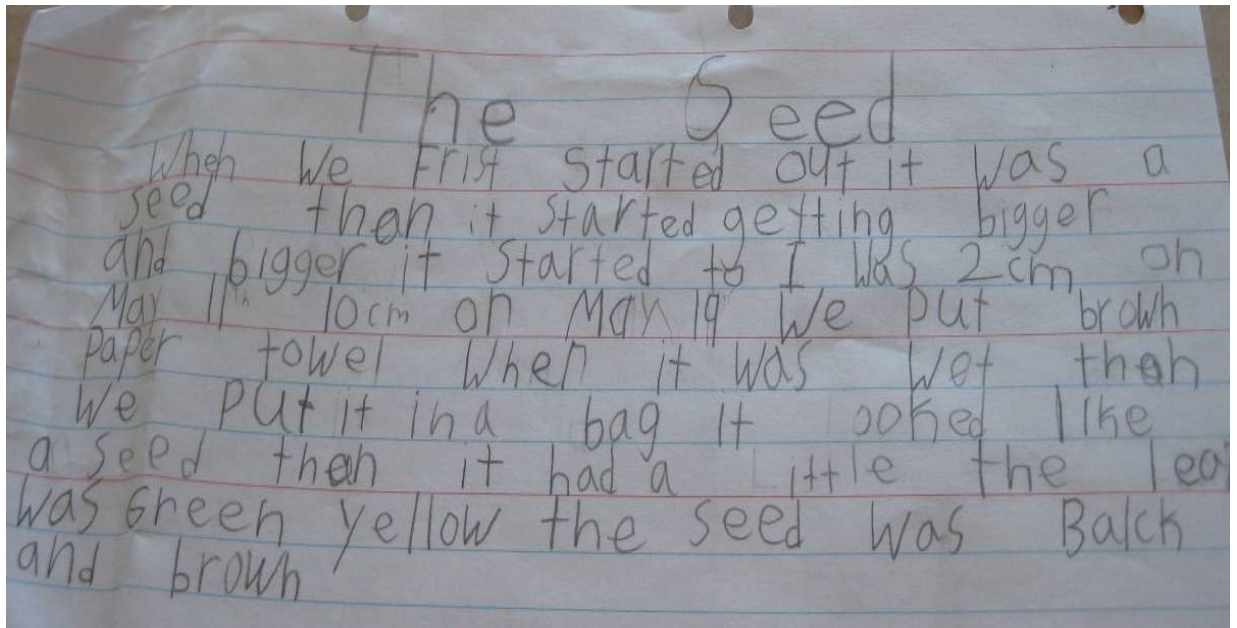 The Seed
When We Frist Started out it Was a
seed then it started getting bigger
and bigger it Started to I Was 2cm on
May 11th 10cm on May 19 We put brown
paper towel When it was Wet then
We put it in a bag it ooked like
a seed then it had a Little the lea
Was Green yellow the seed was Balck
and brown